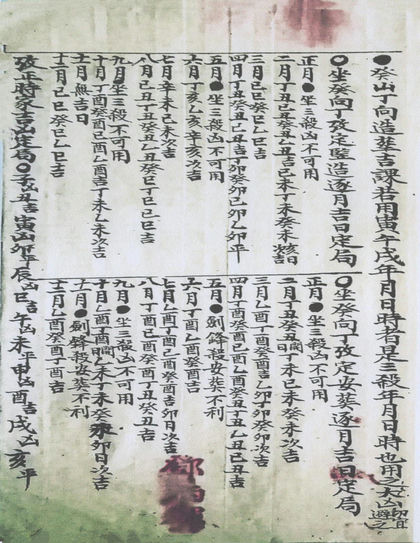 ●癸山丁向造葬吉課若用寅午戌年月日時者是三殺年月日時也用之大凶卽宜避之
○坐癸向丁改定監造逐月吉日定局
正月●坐三殺凶不可用
二月丁丑乙丑癸丑己未丁未癸未亥日次吉
三月己巳癸巳乙巳吉
四月丁丑癸丑己丑吉丁卯癸卯己卯乙卯平
五月●坐三殺凶不可用
六月丁亥乙亥辛亥次吉
七月辛未己未次吉
八月己丑丁丑癸丑乙丑癸巳丁巳己巳吉
九月●坐三殺不可用
十月丁酉癸酉己酉乙酉吉丁未乙未次吉
十一月無吉日
十二月己巳癸巳乙巳吉
○坐癸向丁改定安葬逐月吉日定局
正月●坐三殺凶不可用
二月丁丑癸丑日丁未己未癸未次吉
三月乙酉丁酉癸酉吉乙卯癸卯次吉
四月丁酉己酉癸酉乙酉吉癸丑丁丑乙丑己丑吉
五月●劍鋒殺安葬不利
六月丁酉乙酉癸酉吉
七月丁酉己酉癸酉乙酉吉卯日次吉
八月丁酉己酉癸酉丁丑癸丑吉
九月●坐三殺凶不可用
十月丁酉癸酉乙未丁未癸未卯日次吉
十一月●劍鋒殺安葬不利
十二月乙酉癸酉丁酉吉
改正時家吉凶定局○子凶丑吉寅凶卯平辰凶巳吉午凶未平申凶酉吉戌凶亥平